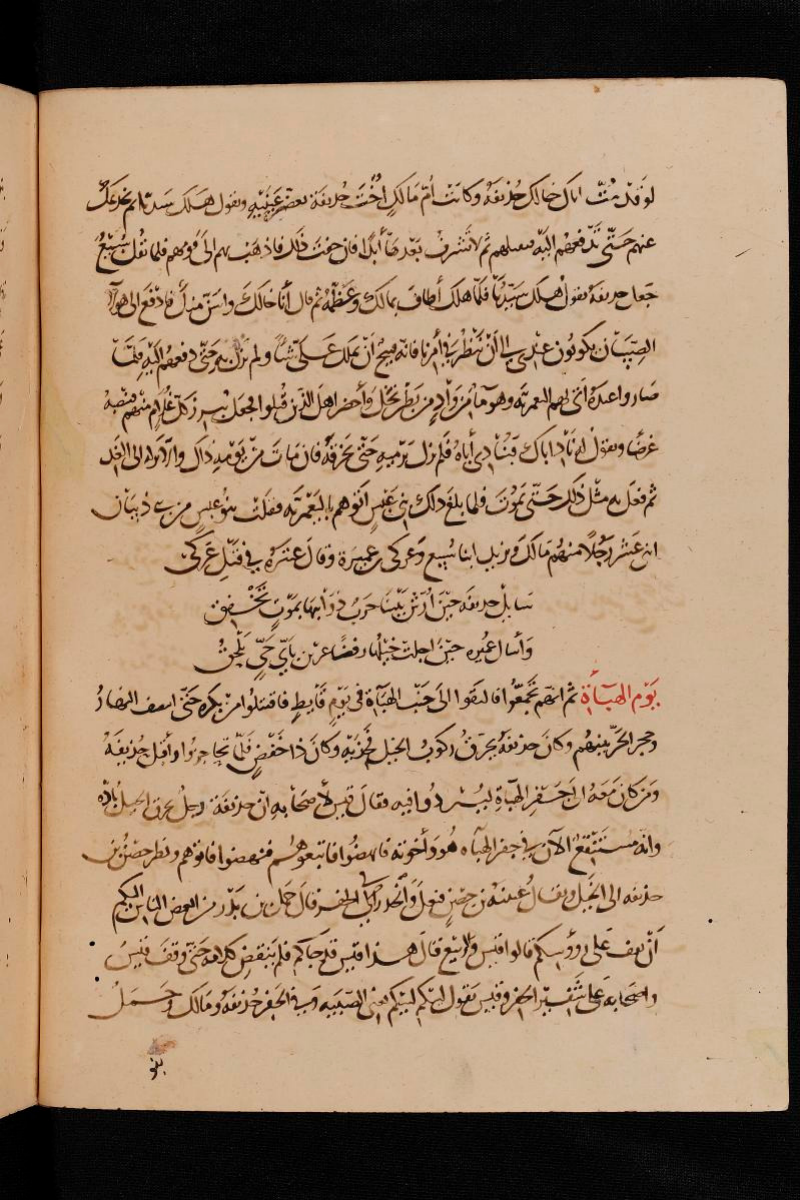 لو قد مت اتاك خالك حذيفة وكانت أم مالك أخت حذيفة يعصر عينيه ويقول هلك سيدنا ثم يخدعك
عنهم حتى تدفعهم اليه فيقتلهم ثم لا تشرف بعدها أبدا فان خفت ذلك فاذهب بهم الى قومهم فلما ثقل سبيع
جعل حذيفة يقول هلك سيدنا فلما هلك أطاف بمالك وعظمه ثم قال أنا خالك واسن منك فادفع الى هولاء
الصبيان يكونون عندي الى أن ننظر في أمرنا فانه قبيح أن تملك على شيئا ولم يزل به حتى دفعهم اليه فلما
صاروا عنده أتى بهم اليعمرية وهو ماء من واد من بطن نخل وأحضر اهل الذين قتلوا فجعل يبرز كل غلام منهم فينصبه
غرضا ويقول له ناد اباك فينادي أباه فلم يزل يرميه حتى يخرقه فان مات من يومه ذاك والا تركه الى الغد
ثم فعل به مثل ذلك حتى يموت فلما بلغ ذلك بني عبس اتوهم باليعمرية فقتلت بنو عبس من بني ذبيان
اثني عشر رجلا منهم مالك ويزيد ابنا سبيع وعركي بن عميرة وقال عنتره في قتل عركي
سايل حذيفة حين أرش بيننا حربا ذوائبها بموت تخفق
واسال عميرة حين اجلبت خيلها رفضا عرين بأي حي تلحق
يوم الهبأة ثم انهم تجمعوا فالتقوا الى جنب الهباة في يوم قايظ فاقتتلوا من بكره حتى انتصف النهار
وحجز الحر بينهم وكان حذيفة يحرق ركوب الخيل فخذيه وكان ذا خفض فلما تحاجزوا وأقبل حذيفة
ومن كان معه الى جفر الهباة ليتبردوا فيه فقال قيس لأصحابه ان حذيفة رجل محرق الخيل بادة
وانه مستنقع الآن في جفر الهباه هو وأخوته فانهضوا فاتبعوهم فنهضوا فاتوهم ونظر حصن بن
حذيفه الى الخيل ويقال عيينة بن حصن فبعل وانحدر في الجفر فقال حمل بن بدر من ابغض الناس اليكم
أن يقف على رؤسكم قالوا قيس والربيع قال هذا قيس قد جاكم فلم ينقض كلامه حتى وقف قيس
واصحابه على شفير الجفر وقيس يقول لبيكم لبيكم يعني الصبية وفي الجفر حذيفة ومالك وحمل
بنو